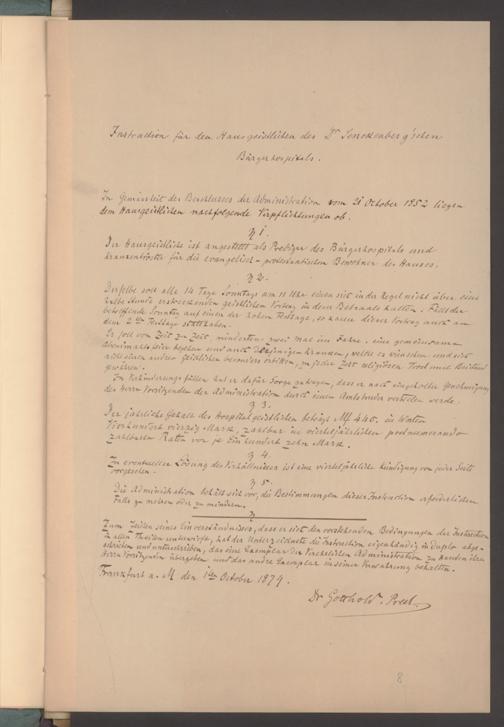 Instruction für den Hausgeistlichen des Dr Senckenberg'schen
Bürgerhospitals.
In Gemässheit des Beschlusses der Administration vom 21 October 1852 liegen
dem Hausgeistlichen nachfolgende Verpflichtungen ob.
§ 1.
Der Hausgeistliche ist angestellt als Prediger des Bürgerhospitals und
Krankentröster für die evangelisch-protestantischen Bewohner des Hauses.
§ 2.
Derselbe soll alle 14 Tage Sonntags um 11 Uhr einen sich in der Regel nicht über eine
halbe Stunde erstreckenden geistlichen Vortrag in dem Betsaale halten. Fiele der
betreffende Sonntag auf einen der hohen Festtage, so kann dieser Vortrag auch an
dem 2ten Festtage statthaben.
Er soll von Zeit zu Zeit, mindestens zwei Mal im Jahre, eine gemeinsame
Abendmahlsfeier begehen und auch denjenigen Kranken, welche es wünschen und sich
nicht einen andern Geistlichen besonders erbitten, zu jeder Zeit religiösen Trost und Beistand
gewähren.
In Verhinderungsfällen hat er dafür Sorge zu tragen, dass er nach eingeholter Genehmigung
des Herrn Vorsitzenden der Administration durch einen Amtsbruder vertreten werde.
§ 3.
Der jährliche Gehalt des Hospitalgeistlichen beträgt M 440. in Worten
Vierhundert vierzig Mark, zahlbar in vierteljährlichen postnumerando
zahlbaren Raten von je Einhundert zehn Mark.
§ 4.
Zu eventueller Lösung des Verhältnisses ist eine vierteljährliche Kündigung von jeder Seite
vorgesehen.
§ 5.
Die Administration behält sich vor, die Bestimmungen dieser Instruction erforderlichen
Falls zu mehren oder zu mindern.
Zum Zeichen seines Einverständnisses, dass er sich den vorstehenden Bedingungen der Instruction
in allen Theilen unterwirft, hat der Unterzeichnete die Instruction eigenhändig in duplo abge-
schrieben und unterschrieben, das eine Exemplar der Verehrlichen Administration zu Handen ihres
Herrn Vorsitzenden übergeben und das andere Exemplar in seiner Verwahrung behalten.
Frankfurt a. M den 1ten October 1879.
Dr Gotthold
8